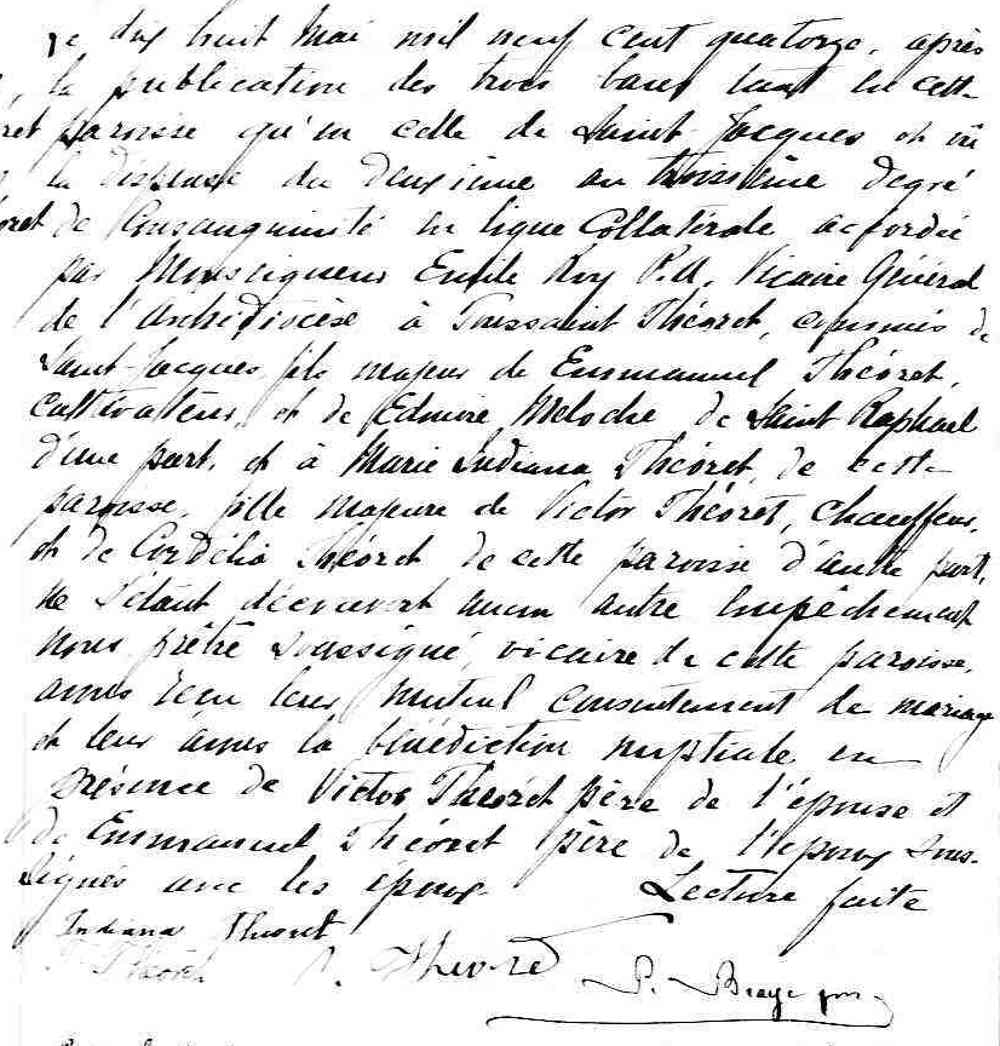 Le dix huit Mai mil neuf cent quatorze, après
la publication des trois bans tant en cette
ret paroisse qu'en celle de Saint-Jacques et vû
la dispense du deuxième au troisième degré
oret de Consanguinité en ligne Collatérale accordée
par Monseigneur Emile Roy P.A. Vicaire Général
de l'Archidiocèse à Toussaint Théoret, commis de
Saint-Jacques, fils majeur de Emmanuel Théoret,
cultivateur, et de Edmire Meloche de Saint Raphael
d'une part, et à Marie Indiana Théoret, de cette
paroisse, fille majeure de Victor Théoret, chauffeur,
et de Cordélia Théoret de cette paroisse d'autre part,
ne s'étant découvert aucun autre empêchement
nous prêtre soussigné, vicaire de cette paroisse,
avons reçu leur mutuel consentement de mariage
et leur avons la bénédiction nuptiale en
présence de Victor Théoret père de l'épouse et
de Emmanuel Théoret père de l'époux sous-
signés avec les époux. Lecture faite
Indiana Theoret
T. Theoret Theoret P.